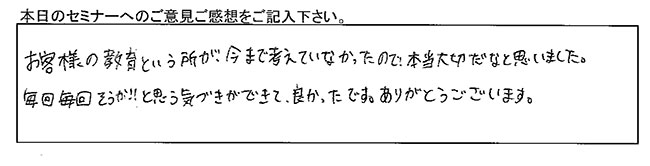 本日のセミナーへのご意見ご感想をご記入下さい。
お客様の教育という所が、今まで考えていなかったので、本当大切だなと思いました。
毎回毎回そうか!!と思う気づきができて、良かったです。ありがとうございます。